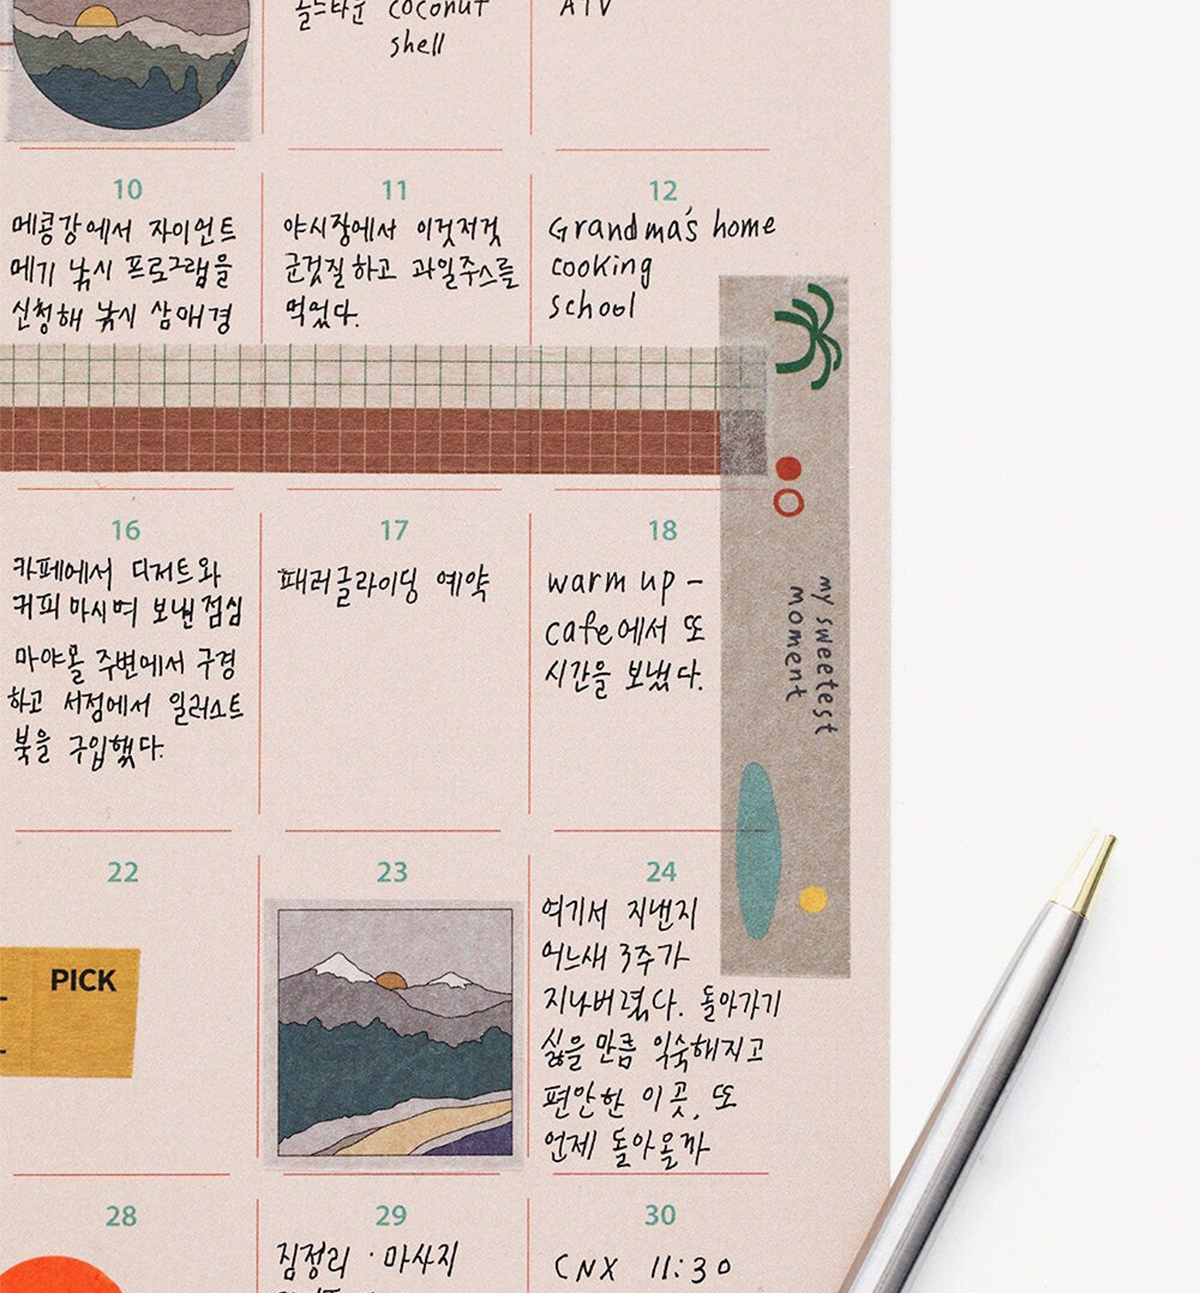 올드타운 coconut
shell
ATV
10
메콩강에서 자이언트
메기 낚시 프로그램을
신청해 낚시 삼매경
11
야시장에서 이것저것
군것질하고 과일주스를
먹었다.
12
Grandma's home
cooking
school
16
카페에서 디저트와
커피 마시며 보낸 점심
마야몰 주변에서 구경
하고 서점에서 일러스트
북을 구입했다.
17
패러글라이딩 예약
18
warm up -
cafe에서 또
시간을 보냈다.
my sweetest
moment
22
PICK
23
24
여기서 지낸지
어느새 3주가
지나버렸다. 돌아가기
싫을 만큼 익숙해지고
편안한 이곳, 또
언제 돌아올까
28
29
짐정리 · 마사지
30
CNX 11:30